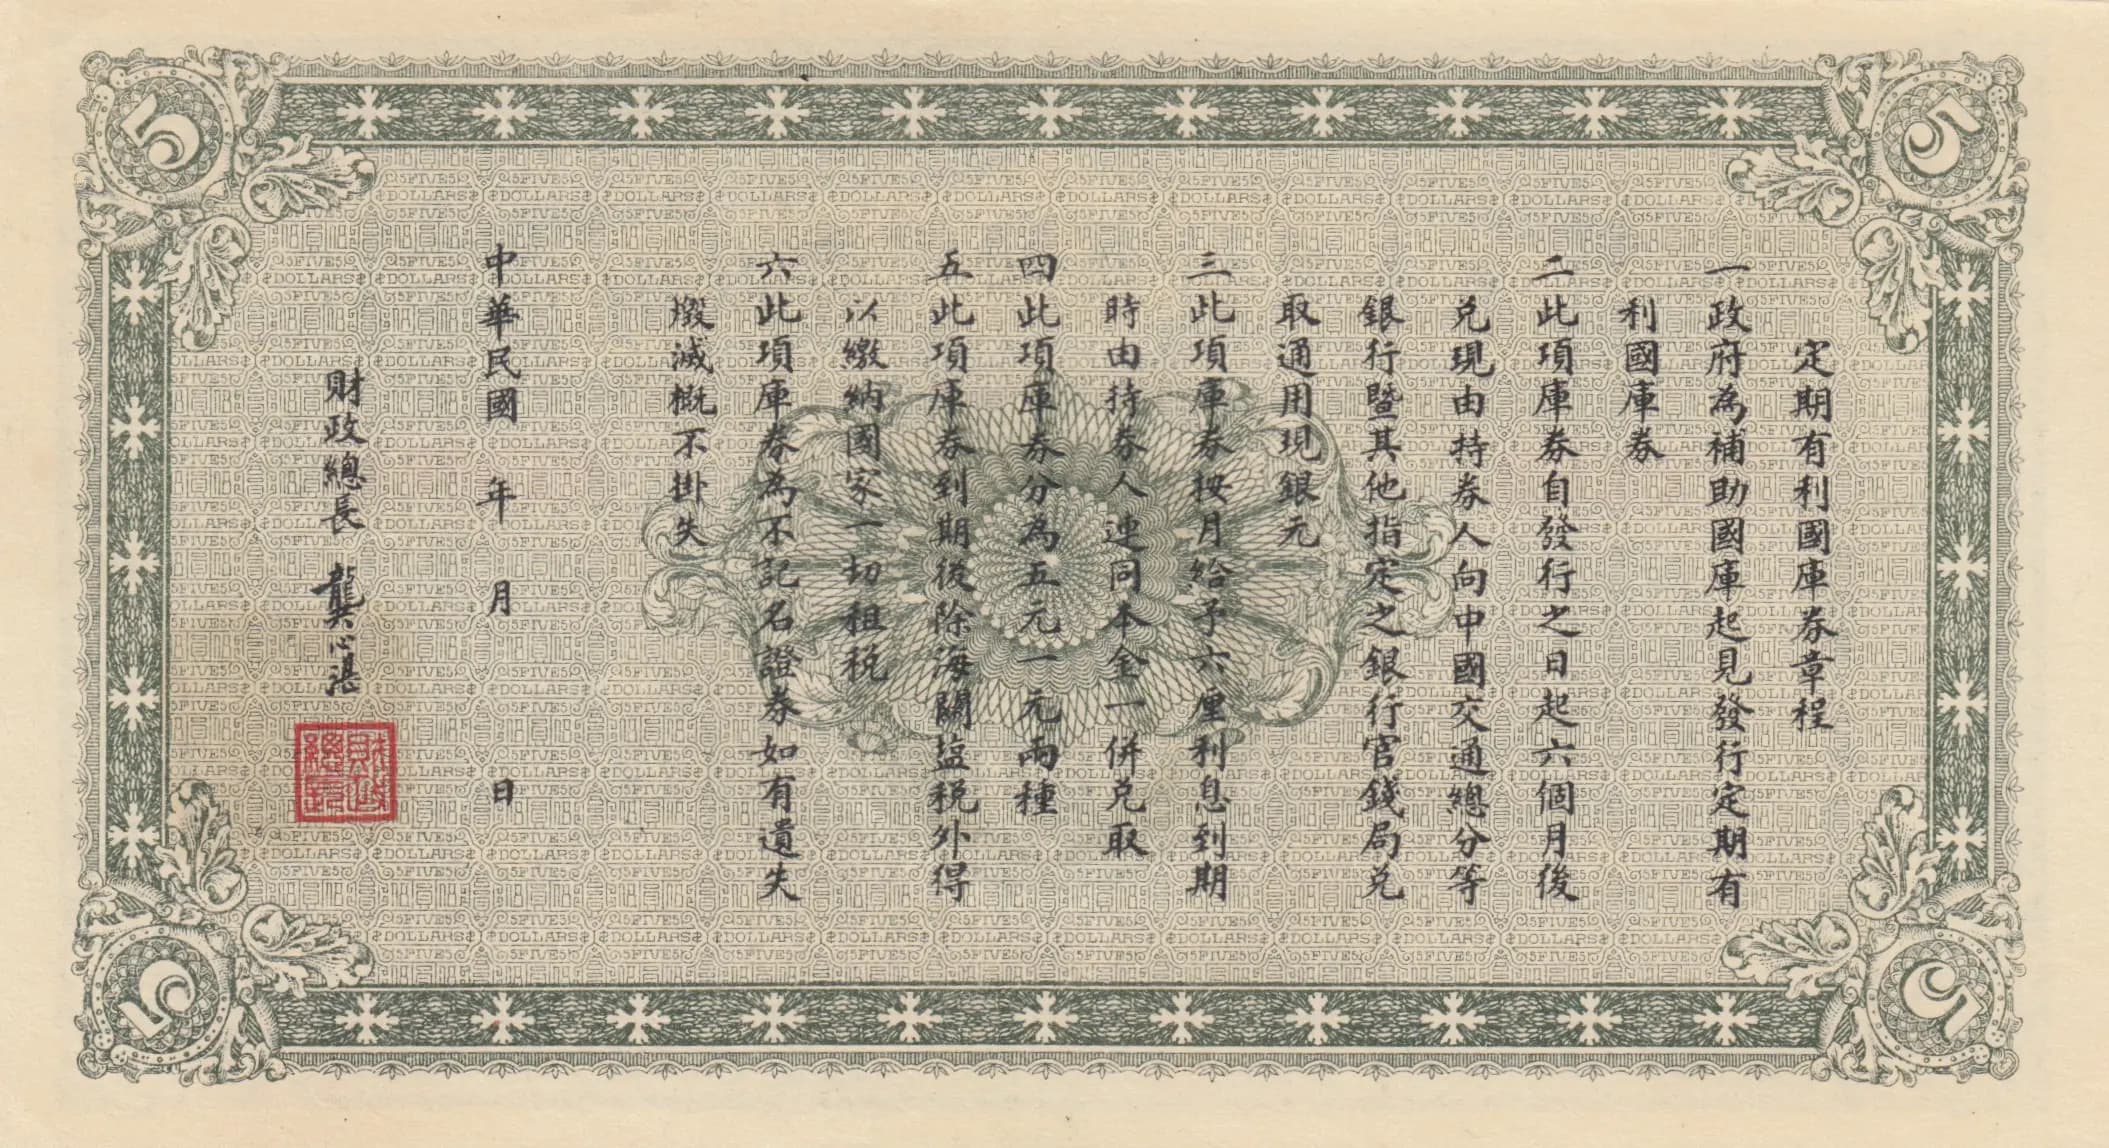 定期有利國庫券章程
一政府為補助國庫起見發行定期有
利國庫券
二此項庫券自發行之日起六個月後
兑現由持券人向中國交通總分等
銀行暨其他指定之銀行官錢局兑
取通用現銀元
三此項庫券按月給予六厘利息到期
時由持券人連同本金一併兑取
四此項庫券分為五元一元兩種
五此項庫券到期後除海關盐税外得
以繳納國家一切租税
六此項庫券為不記名證券如有遺失
燬滅概不掛失
中華民國 年 月 日
財政總長 龔心湛
財政總長
5
5
5
5
5FIVE5
DOLLARS